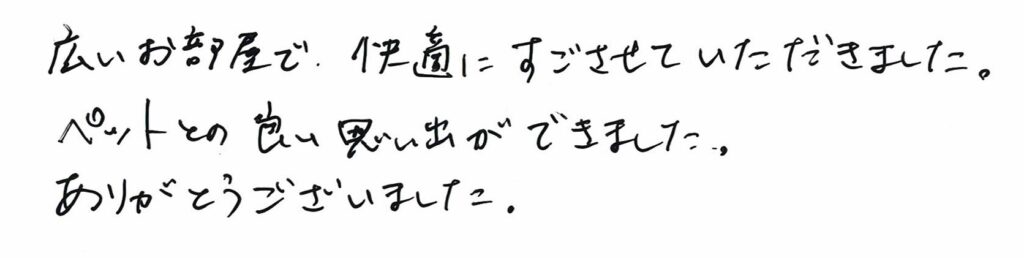 広いお部屋で、快適にすごさせていただきました。
ペットとの良い思い出ができました。
ありがとうございました。